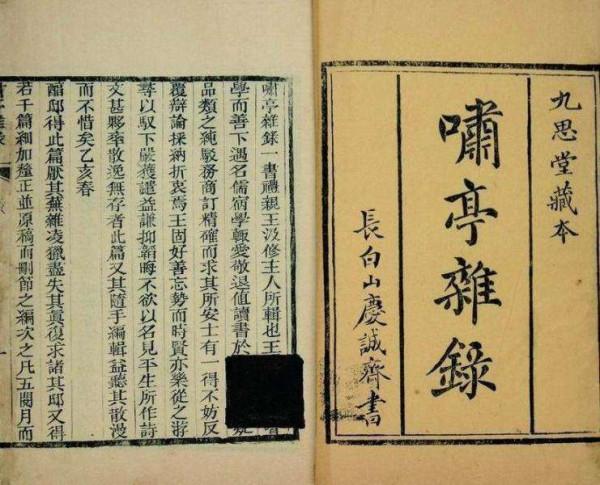 九思堂藏本
嘯亭雜錄
長白山慶誠齊書
嘯亭雜錄一書禮親王汲修主人所輯也王
學而善下遇名儒宿學輒愛敬退値讀書於
品類之純駁務商訂精確而求其所安士有一得不妨反
覆辯論採納折衷焉王固好善忘勢而時賢亦樂從之游
尋以馭下嚴獲譴益謙抑韜晦不欲以名見平生所作詩
文甚夥率散逸無存者此篇又其隨手編輯益聽其散漫
而不惜矣乙亥春
醕邸得此篇厭其蕪雜凌獵盡失其眞復求諸其邸又得
若干篇細加釐正並原稿而刪節之編次之凡五閱月而